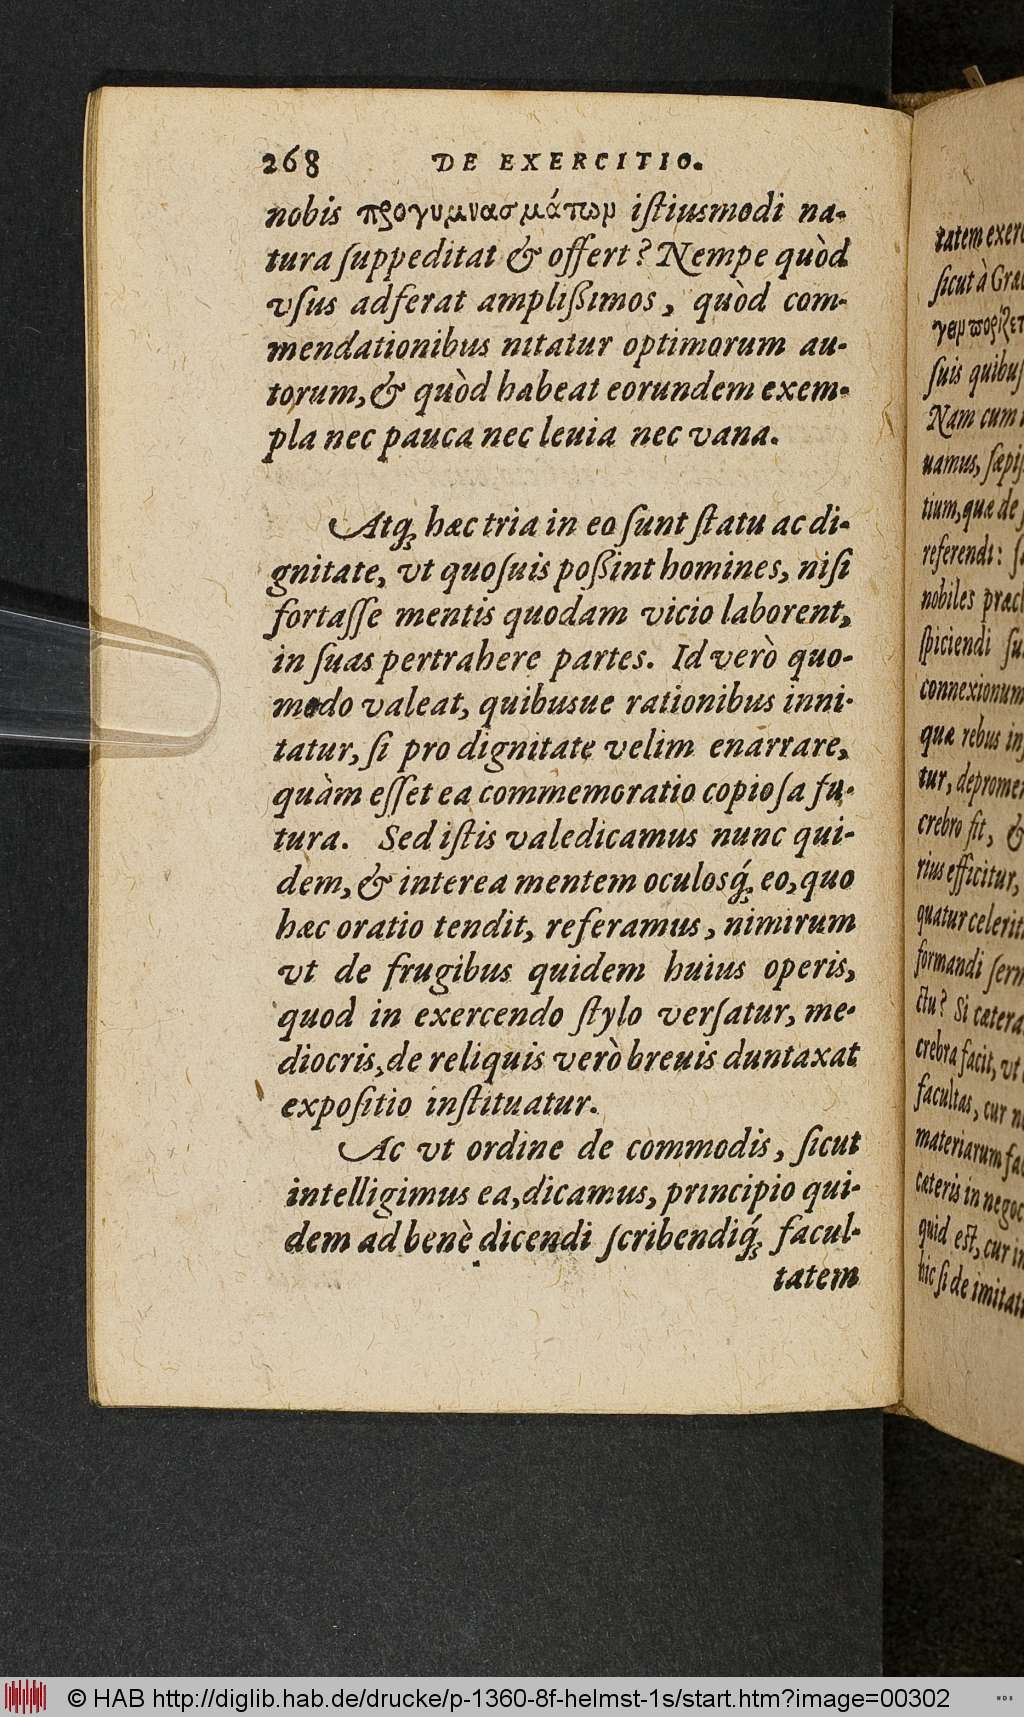 268 DE EXERCITIO.
nobis προγυμνασμάτων istiusmodi na-
tura suppeditat & offert? Nempe quòd
vsus adferat amplißimos, quòd com-
mendationibus nitatur optimorum au-
torum, & quòd habeat eorundem exem-
pla nec pauca nec leuia nec vana.
Atq; hæc tria in eo sunt statu ac di-
gnitate, vt quosuis poßint homines, nisi
fortasse mentis quodam vicio laborent,
in suas pertrahere partes. Id verò quo-
modo valeat, quibusue rationibus inni-
tatur, si pro dignitate velim enarrare,
quàm esset ea commemoratio copiosa fu-
tura. Sed istis valedicamus nunc qui-
dem, & interea mentem oculosq́; eo, quo
hæc oratio tendit, referamus, nimirum
vt de frugibus quidem huius operis,
quod in exercendo stylo versatur, me-
diocris, de reliquis verò breuis duntaxat
expositio instituatur.
Ac vt ordine de commodis, sicut
intelligimus ea, dicamus, principio qui-
dem ad benè dicendi scribendiq́; facul-
tatem
tatem exer
sicut à Gra
suis quibus
Nam cum
uamus, sæpiſ
tium, quæ de
referendi: s
nobiles præcl
spiciendi su
connexionum
quæ rebus in
tur, deprome
crebro fit, &
rius efficitur,
quatur celerit
formandi serm
ctu? Si cætera
crebra facit, vt
facultas, cur n
materiarum fa
cæteris in negoc
quid est, cur in
hic si de imitati
© HAB http://diglib.hab.de/drucke/p-1360-8f-helmst-1s/start.htm?image=00302